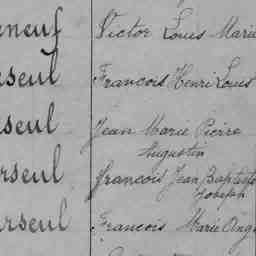 eneuf Victor Louis Marie
rseul Francois Henri Louis
rseul Jean Marie Pierre
Augustin
rseul Francois Jean Baptiste
Joseph
rseul Francois Marie Ang